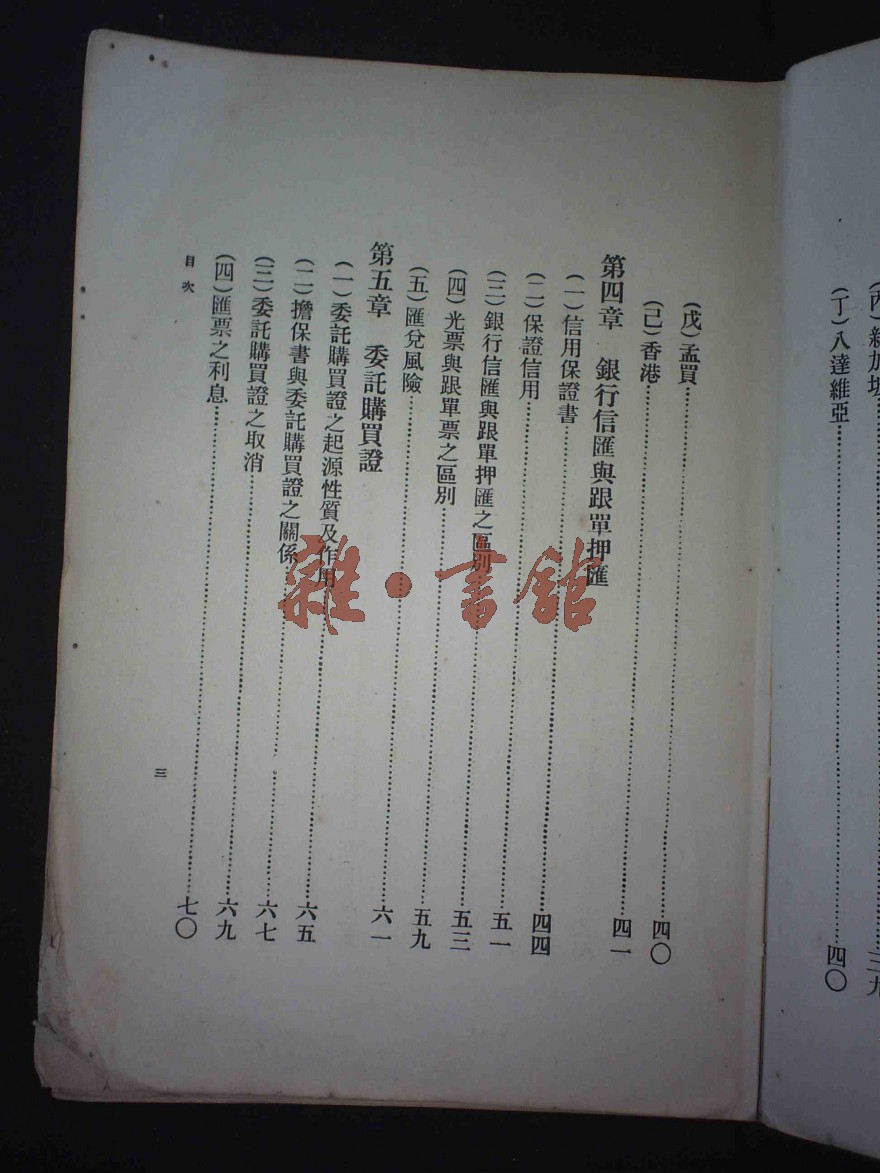 (丙)新加坡……三九
(丁)八達維亞……四〇
(戊)孟買……四〇
(己)香港……四一
第四章　銀行信匯與跟單押匯
(一)信用保證書……四四
(二)保證信用……五一
(三)銀行信匯與跟單押匯之區別……五三
(四)光票與跟單票之區別……五九
(五)匯兌風險……六一
第五章　委託購買證
(一)委託購買證之起源性質及作用……六五
(二)擔保書與委託購買證之關係……六七
(三)委託購買證之取消……六九
(四)匯票之利息……七〇
目次
三
雜·書館